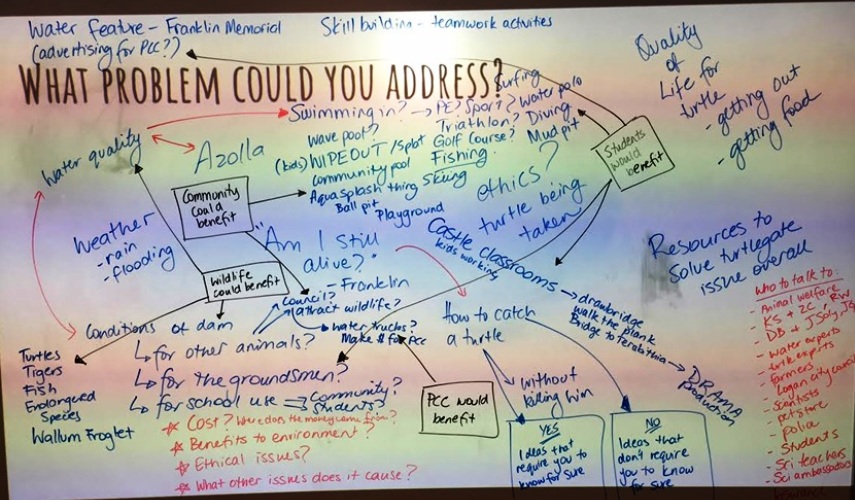 Water Feature - Franklin Memorial
(advertising for PCC?)
Skill building - teamwork activities
WHAT PROBLEM COULD YOU ADDRESS?
Quality
of
Life for
turtle
- getting out
- getting food
Swimming in? → PE? Sport?
Surfing
Water polo
Triathlon?
Diving
Golf Course?
Mud pit
Fishing
Skiing
Wave pool?
(kids) WIPEOUT/Splat
Community pool
Aquasplash thing
Ball pit
Playground
Water quality
Azolla
Students
would
benefit
Community
could
benefit
ethics?
turtle being
taken
Weather
- rain
- flooding
"Am I still
alive?"
- Franklin
Castle classrooms
kids working
Resources to
solve turtlegate
issue overall
Wildlife
could benefit
council?
attract wildlife?
water trucks?
Make $ for PCC
How to catch
a turtle
without
killing him
drawbridge
walk the plank
Bridge to terabithia
DRAMA
production
Conditions of dam
for other animals?
for the groundsmen?
for school use
Community?
Students?
Turtles
Tigers
Fish
Endangered
Species
Wallum Froglet
Cost? Where does the money come from?
Benefits to environment?
Ethical issues?
What other issues does it cause?
PCC would
benefit
YES
Ideas that
require you to
know for sure
NO
Ideas that
don't require
you to know
for sure
Who to talk to:
- Animal welfare
- KS + 2C + RW
- water experts
- turtle experts
- farmers
- Logan city council
- scientists
- pet store
- Students
- Sci teachers
- Sci ambassadors